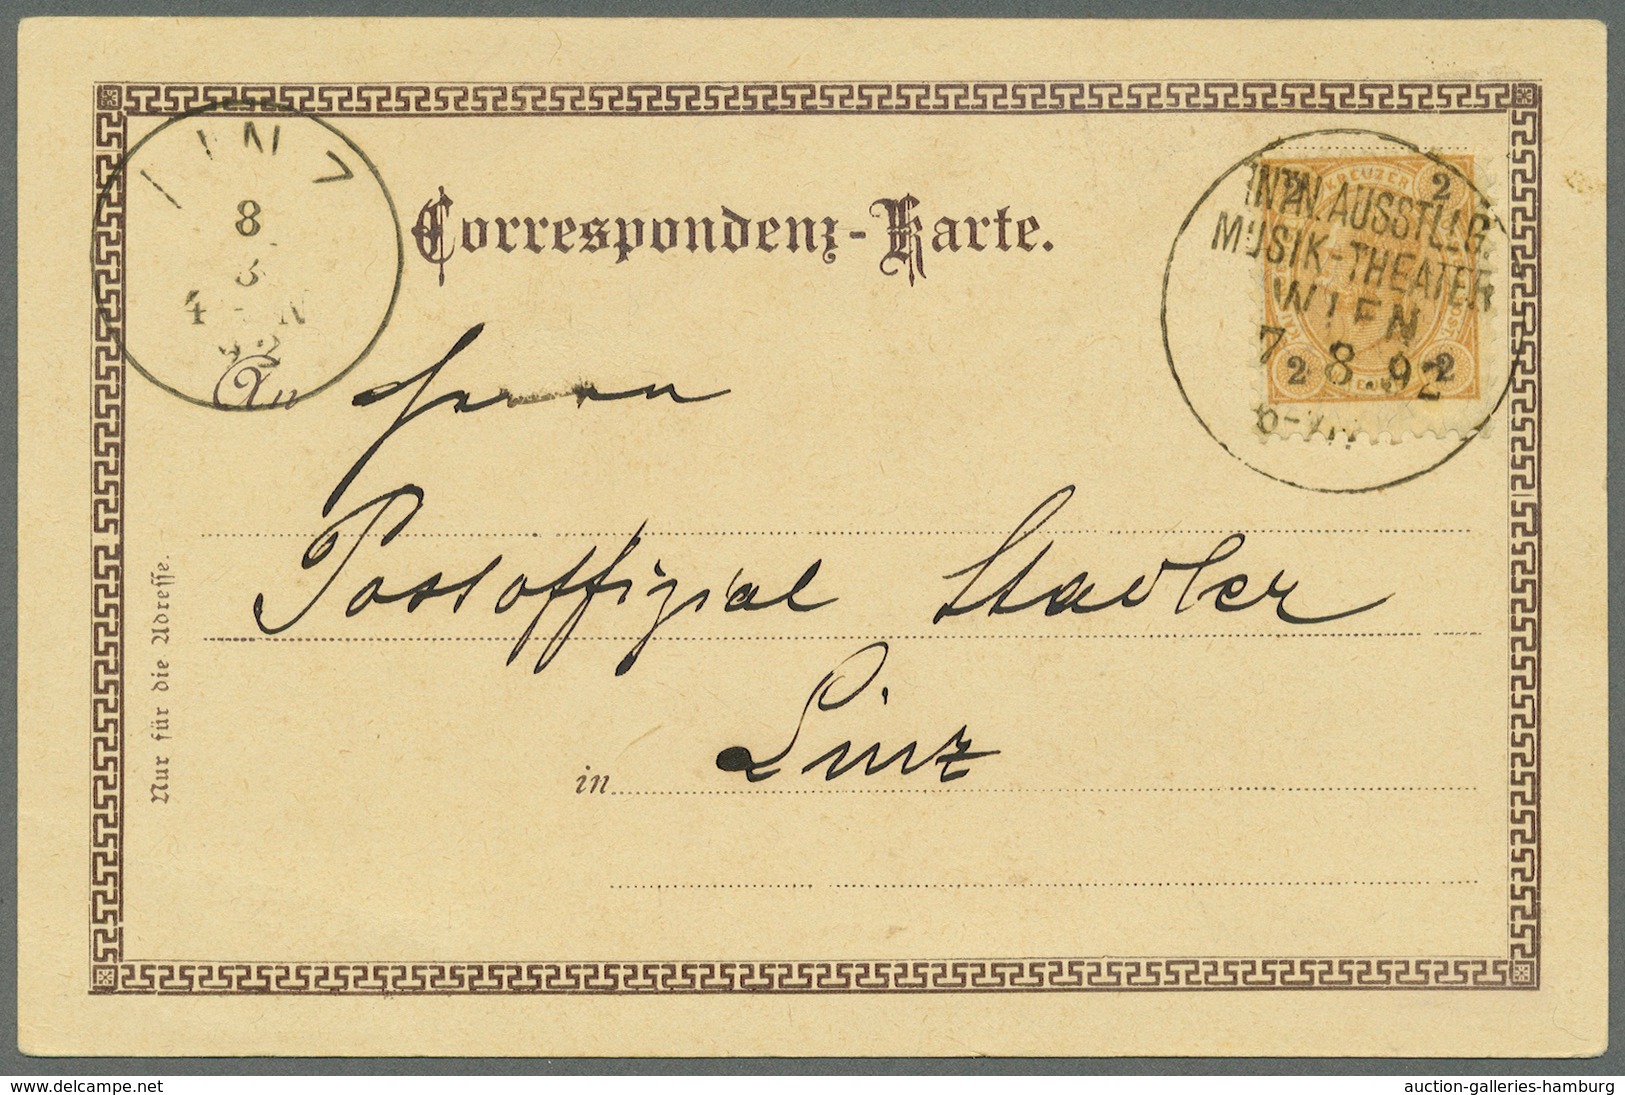 LINZ
8
8
4
92
Correspondenz-Karte.
KREUZER
2 2
INTN. AUSSTLLG.
MUSIK-THEATER
WIEN
7. 8. 92
2 2
An Herrn
Postoffizial Stadler
in Linz
Nur für die Adresse.
delcampe.net
auction-galleries-hamburg